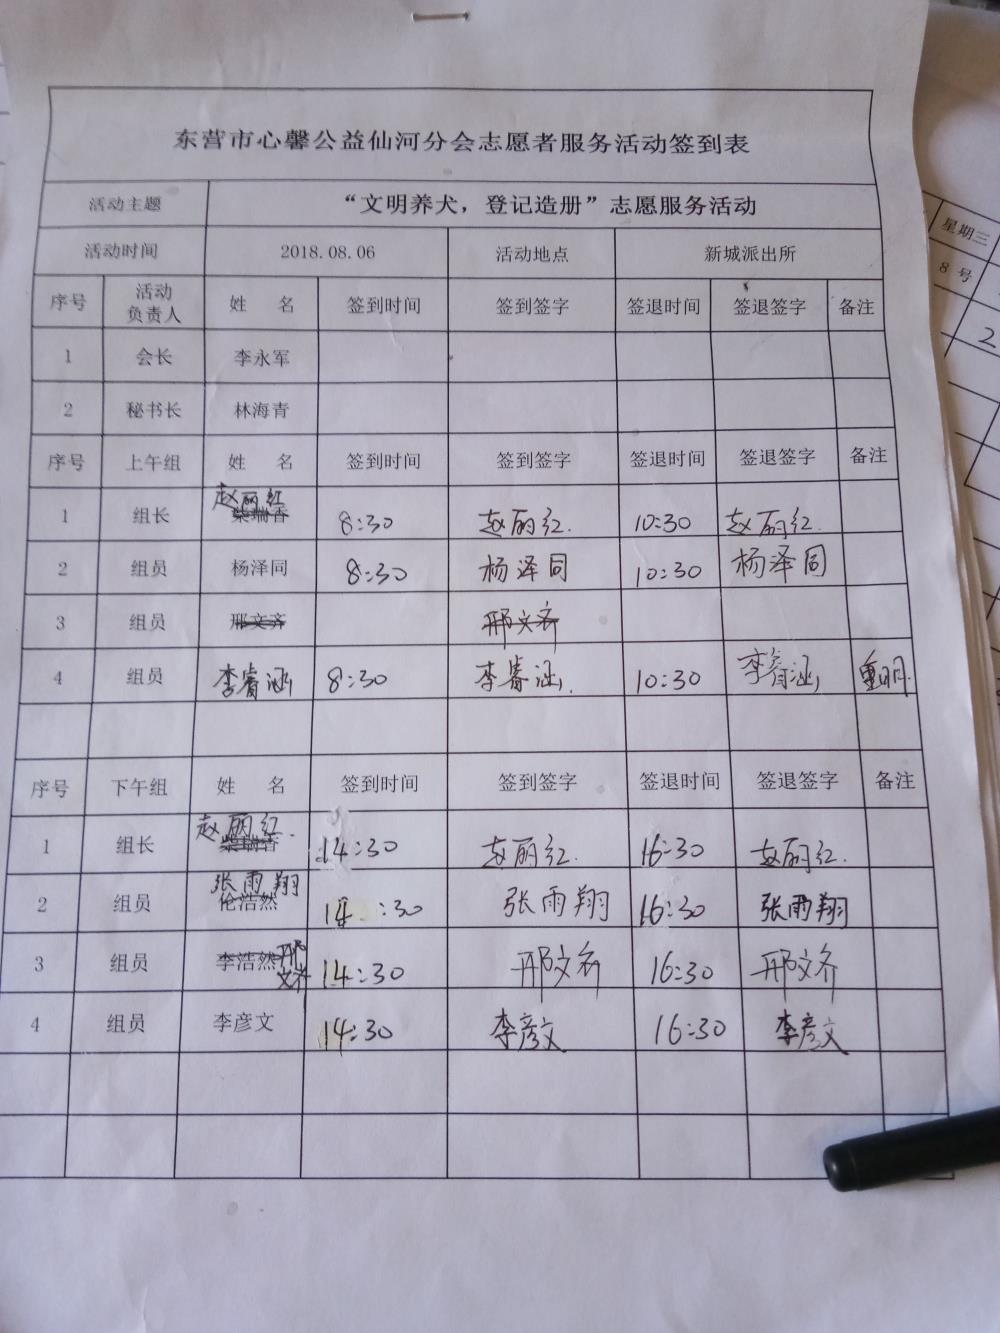 东营市心馨公益仙河分会志愿者服务活动签到表
活动主题 “文明养犬，登记造册”志愿服务活动
活动时间 2018.08.06 活动地点 新城派出所
序号 活动负责人 姓 名 签到时间 签到签字 签退时间 签退签字 备注
1 会长 李永军
2 秘书长 林海青
序号 上午组 姓 名 签到时间 签到签字 签退时间 签退签字 备注
赵丽红
1 组长 柴瑞香 8:30 赵丽红. 10:30 赵丽红.
2 组员 杨泽同 8:30 杨泽同 10:30 杨泽同
3 组员 邢文齐 邢文齐
4 组员 李睿涵 8:30 李睿涵. 10:30 李睿涵
序号 下午组 姓 名 签到时间 签到签字 签退时间 签退签字 备注
赵丽红.
1 组长 柴瑞香 14:30 赵丽红. 16:30 赵丽红.
张雨翔
2 组员 伦浩然 14:30 张雨翔 16:30 张雨翔
3 组员 李浩然 邢文齐 14:30 邢文齐 16:30 邢文齐
4 组员 李彦文 14:30 李彦文 16:30 李彦文
星期三
8号
2